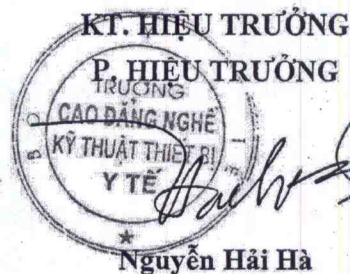 KT. HIỆU TRƯỞNG
P. HIỆU TRƯỞNG
TRƯỜNG
CAO ĐẲNG NGHỀ
KỸ THUẬT THIẾT BỊ
Y TẾ
Nguyễn Hải Hà